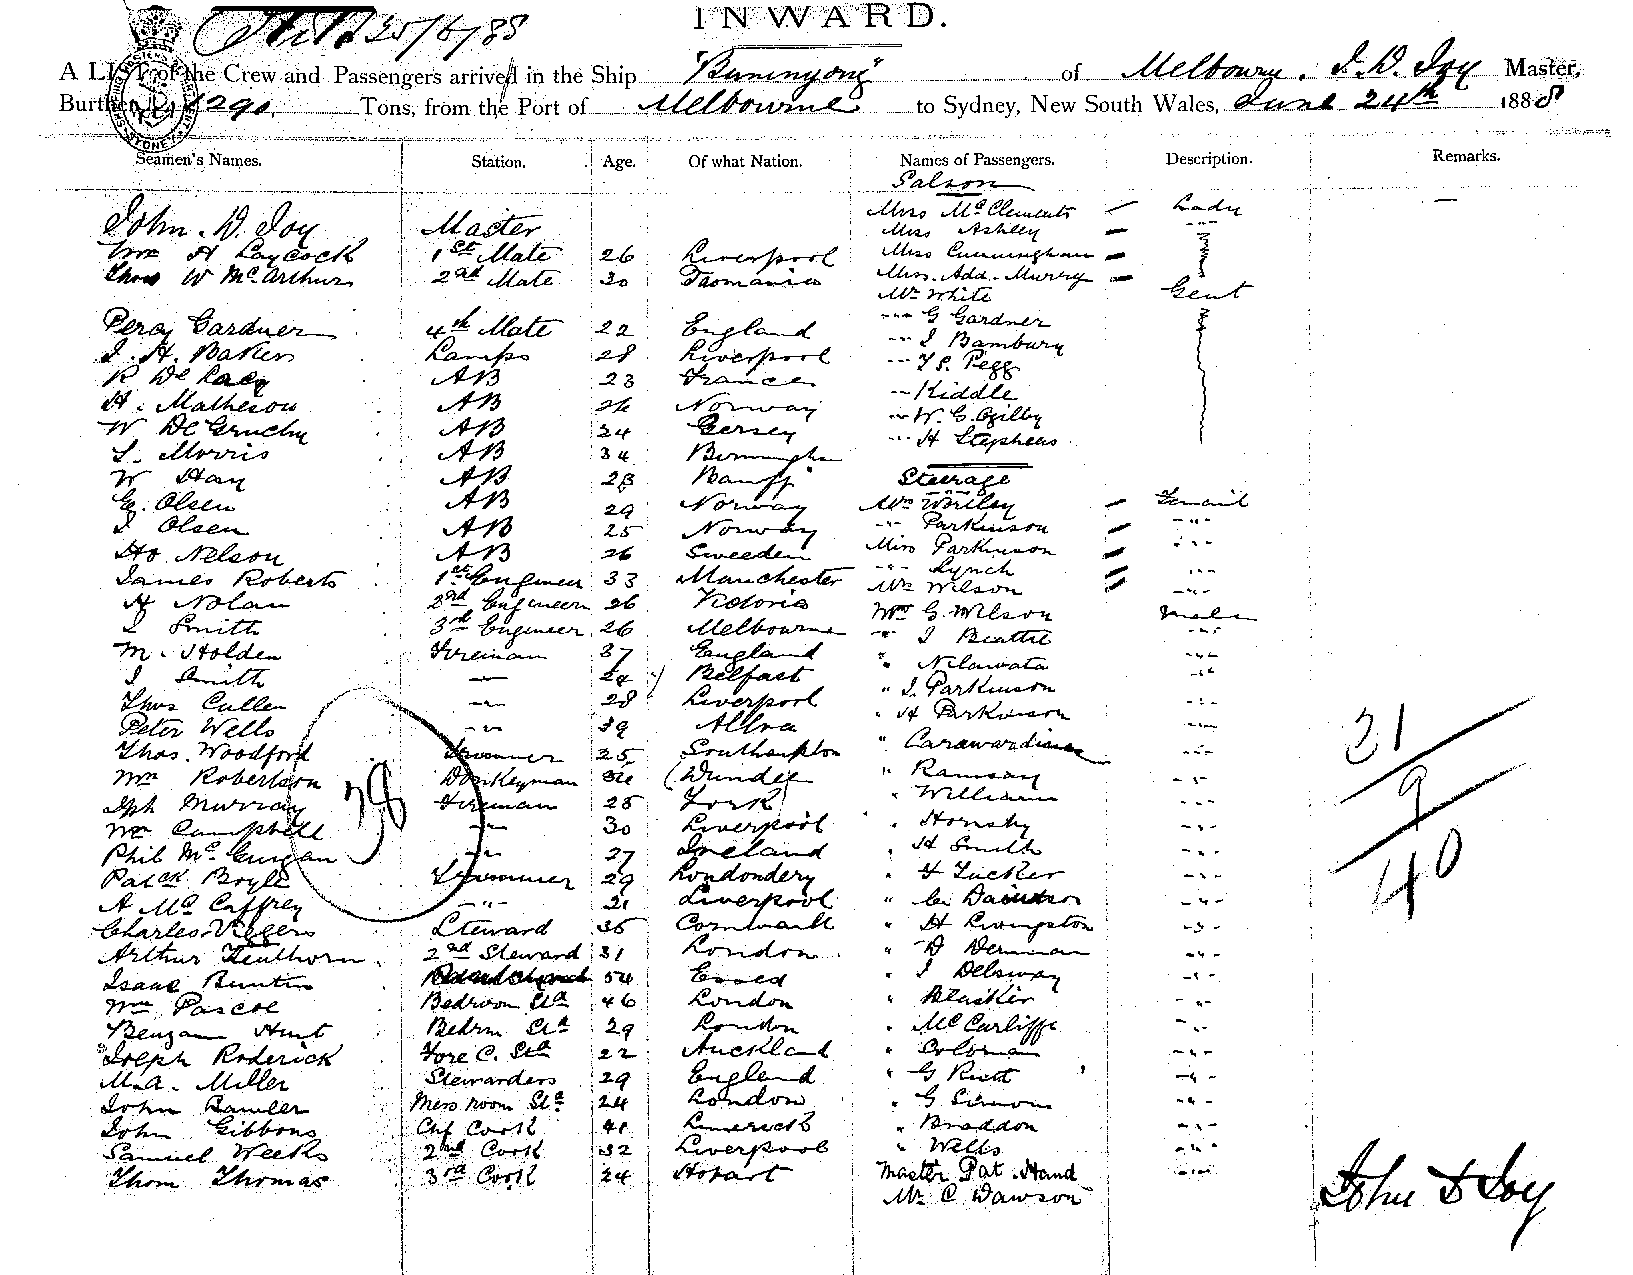 INWARD.
25/6/88
A LIST of the Crew and Passengers arrived in the Ship "Buninyong" of Melbourne. J. D. Joy Master,
Burthen 1290, Tons, from the Port of Melbourne to Sydney, New South Wales, June 24th 1888
Seamen's Names. Station. Age. Of what Nation. Names of Passengers. Description. Remarks.
Saloon
John. D. Joy Master Miss McClements Lady
Miss Ashley
Wm H Laycock 1st Mate 26 Liverpool Miss Cunningham
Thos W McArthur 2nd Mate 30 Tasmania Miss. Add. Murry
Mr White Gent
Percy Gardner 4th Mate 22 England --- G Gardner
J. H. Baker Lamps 28 Liverpool --- J Bambury
R De Lacy AB 23 France --- Pegg
H. Matheson AB 26 Norway --- Kiddle
W De Gruchy AB 24 Gersey --- W. G. Ogilby
S. Morris AB 34 --- H Stephens
W Hay AB 28 Banff Steerage
G. Olsen AB 29 Norway Mrs Worlley Female
J Olsen AB 25 Norway -"- Parkinson -"-
Ho Nelson AB 26 Sweeden Miss Parkinson -"-
James Roberts 1st Engineer 33 Manchester -"- Lynch -"-
Mrs Wilson -"-
H Nolan 2nd Engineer 26 Victoria Mr G. Wilson Male
J Smith 3rd Engineer 26 Melbourne -"- J Beattie -"-
M. Holden Fireman 37 England " Nilawata -"-
J Smith — 24 Belfast " J. Parkinson -"-
Thos Cullen -"- 28 Liverpool " H Parkinson -"-
Peter Wells -"- 39 " -"-
Thos. Woodford Trimmer 25 Southampton " -"-
Wm Robertson Donkeyman 34 Dundee " Ramsay -"-
Jph Murray Fireman 25 York " William -"-
Wm Campbell -"- 30 Liverpool " Hornsby -"-
Phil McGurgan -"- 27 Ireland " H Smith -"-
Patck Boyle Trimmer 29 Londondery " F Tucker -"-
A McCaffrey -"- 21 Liverpool " C. -"-
Charles Viggers Steward 35 Cornwall " H Livingston -"-
Arthur 2nd Steward 31 London " D Denman -"-
Isaac Buntin 54 " J Delsway -"-
Wm Pascoe Bedroom Std 46 London " Blasker -"-
Benjam Hunt Bedrm Std 29 London " McCarliffe -"-
Joseph Roderick Fore C. Std 22 Auckland " Coloman -"-
M.A. Miller Stewardess 29 England " G -"-
John Bawler Mess room Std 24 London " G Simon -"-
John Gibbons Chf Cook 41 Limerick " Braddon -"-
Samuel Weeks 2nd Cook 32 Liverpool " Wells -"-
Thom Thomas 3rd Cook 24 Hobart Master Pat. Hand -"-
Mr C Dawson
31
9
40
John D Joy